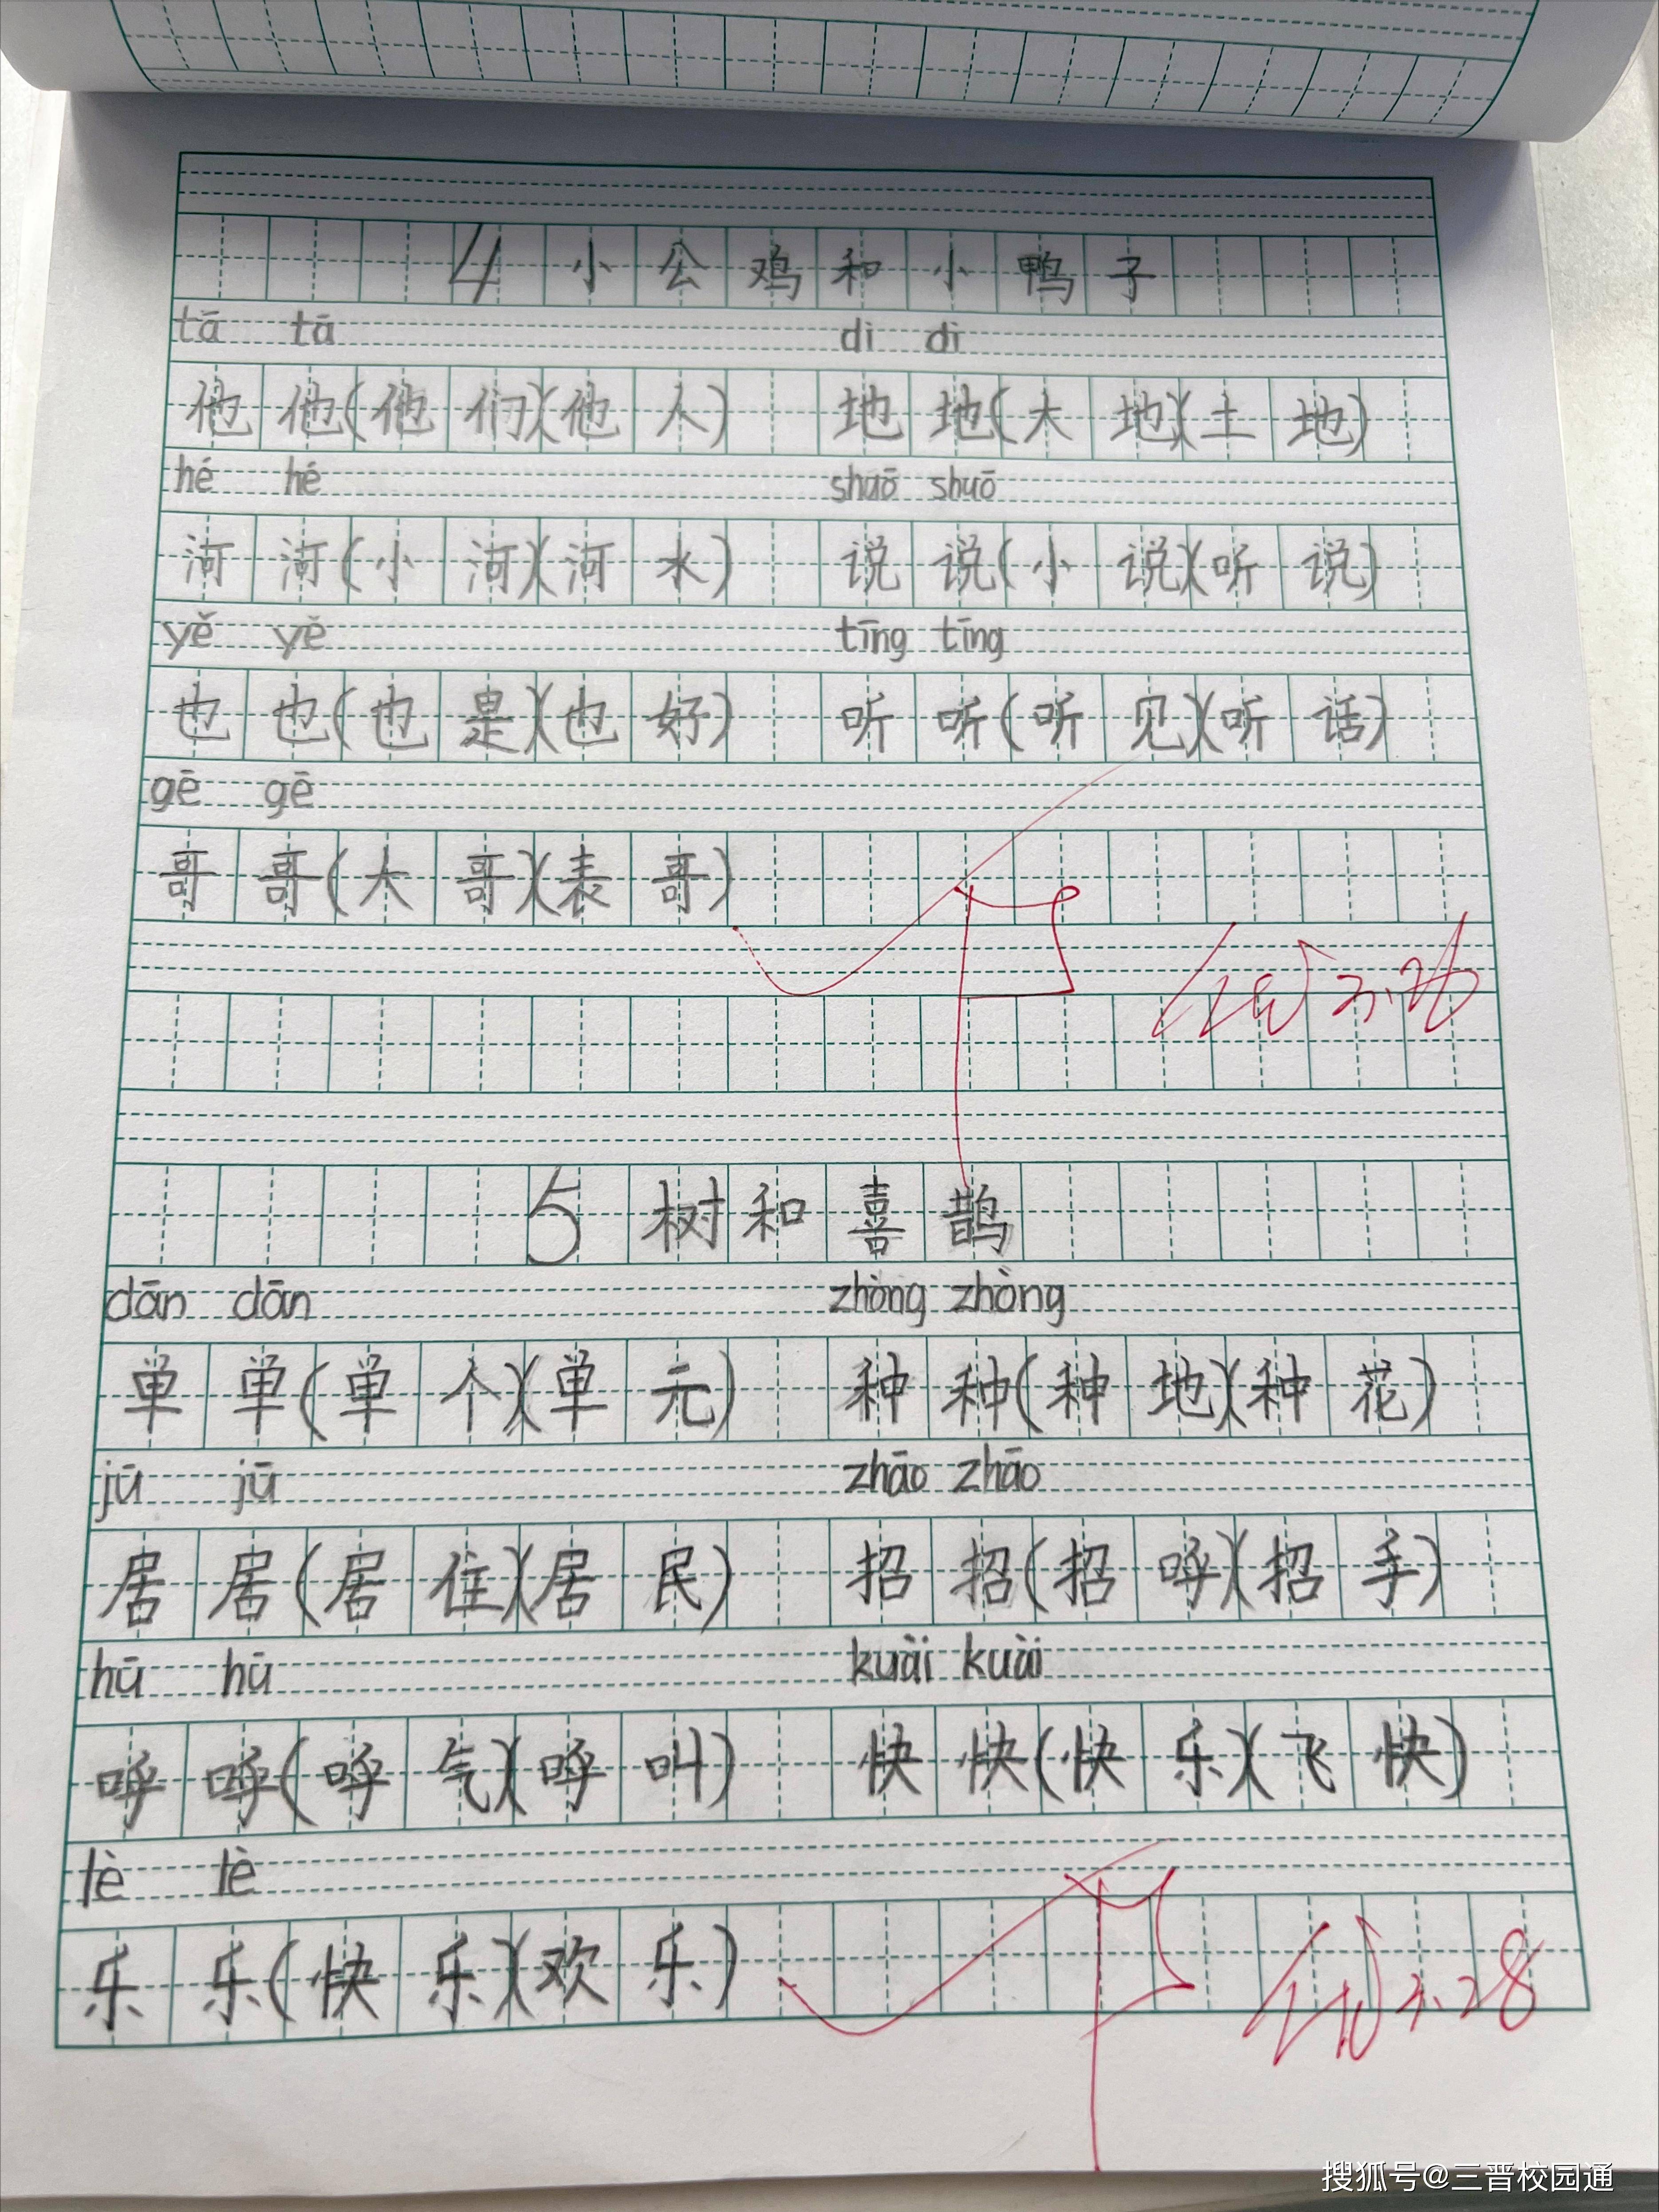 4小公鸡和小鸭子
tā tā dì dì
他他(他们)(他人) 地地(大地)(土地)
hé hé shuō shuō
河河(小河)(河水) 说说(小说)(听说)
yě yě tīng tīng
也也(也是)(也好) 听听(听见)(听话)
gē gē
哥哥(大哥)(表哥)
3.26
5树和喜鹊
dān dān zhòng zhòng
单单(单个)(单元) 种种(种地)(种花)
jū jū zhāo zhāo
居居(居住)(居民) 招招(招呼)(招手)
hū hū kuài kuài
呼呼(呼气)(呼叫) 快快(快乐)(飞快)
lè lè
乐乐(快乐)(欢乐)
3.28
搜狐号@三晋校园通